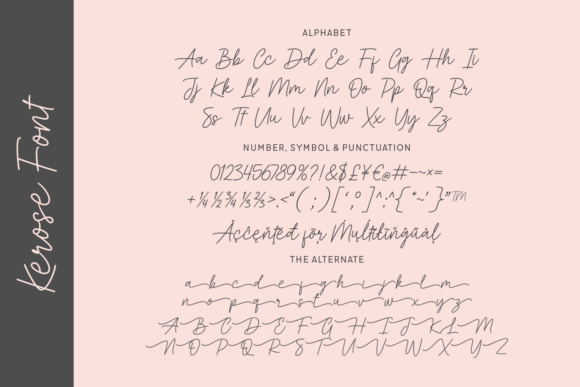 Kerose Font
ALPHABET
Aa Bb Cc Dd Ee Ff Gg Hh Ii
Jj Kk Ll Mm Nn Oo Pp Qq Rr
Ss Tt Uu Vv Ww Xx Yy Zz
NUMBER, SYMBOL & PUNCTUATION
0123456789%?!&$£¥€@#—~×=
+¼½¾⅓⅔>.<“(;)[‘,°]^:^{*~’}”™
Àççėņţēđ főr Mųļţīľīņğüáļ
THE ALTERNATE
a b c d e f g h i j k l m
n o p q r s t u v w x y z
A B C D E F G H I J K L M
N O P Q R S T U V W X Y Z